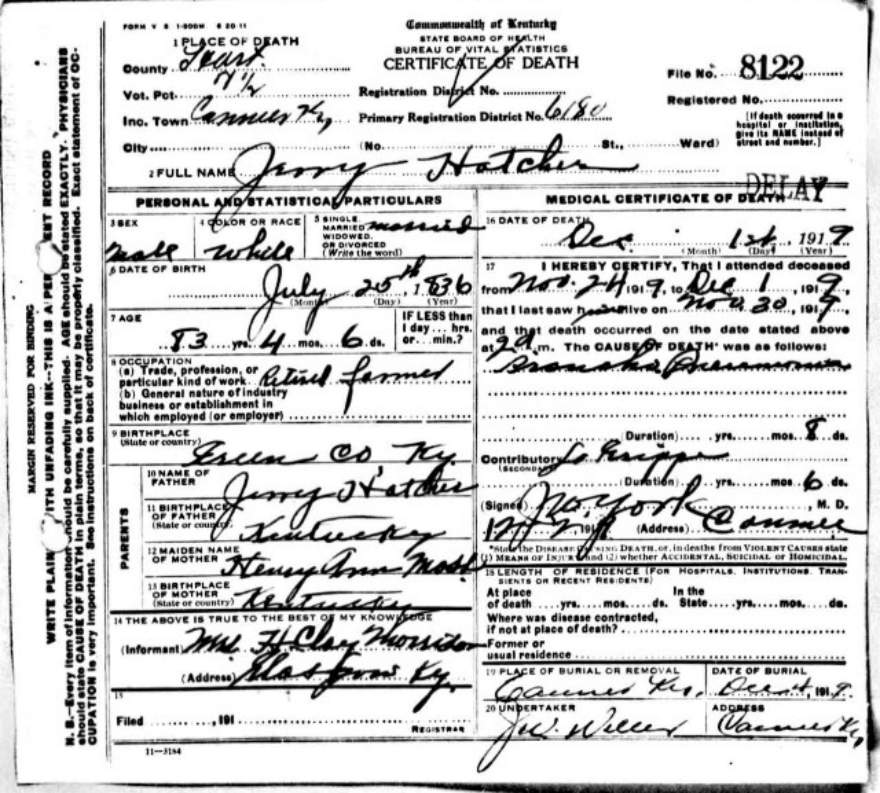 FORM V S 1-500M 6 20 11
Commonwealth of Kentucky
STATE BOARD OF HEALTH
BUREAU OF VITAL STATISTICS
CERTIFICATE OF DEATH
1 PLACE OF DEATH
County
Vot. Pct. 7 1/2
Inc. Town Canmer Ky
City
Registration District No.
Primary Registration District No. 6180
(No. St., Ward)
File No. 8122
Registered No.
[If death occurred in a hospital or institution, give its NAME instead of street and number.]
2 FULL NAME Jerry Hatcher
DELAY
PERSONAL AND STATISTICAL PARTICULARS
3 SEX Male
4 COLOR OR RACE White
5 SINGLE, MARRIED, WIDOWED, OR DIVORCED (Write the word) married
6 DATE OF BIRTH
July 25th, 1836
(Month) (Day) (Year)
7 AGE
83 yrs. 4 mos. 6 ds.
IF LESS than 1 day ... hrs. or ... min.?
8 OCCUPATION
(a) Trade, profession, or particular kind of work Retired farmer
(b) General nature of industry business or establishment in which employed (or employer)
9 BIRTHPLACE (State or country) Green Co Ky.
PARENTS
10 NAME OF FATHER Jerry Hatcher
11 BIRTHPLACE OF FATHER (State or country) Kentucky
12 MAIDEN NAME OF MOTHER Henry Ann Moss
13 BIRTHPLACE OF MOTHER (State or country) Kentucky
14 THE ABOVE IS TRUE TO THE BEST OF MY KNOWLEDGE
(Informant) Mrs. H Clay Morrison
(Address) Glasgow Ky.
15
Filed , 191
REGISTRAR
11-3184
MEDICAL CERTIFICATE OF DEATH
16 DATE OF DEATH
Dec 1st, 1919
(Month) (Day) (Year)
17 I HEREBY CERTIFY, That I attended deceased
from Nov. 24 1919, to Dec 1, 1919,
that I last saw h alive on Nov. 30, 1919,
and that death occurred on the date stated above
at 2 a.m. The CAUSE OF DEATH* was as follows:
Broncho Pneumonia
(Duration) yrs. mos. 8 ds.
Contributory La Grippe
(SECONDARY)
(Duration) yrs. mos. 6 ds.
(Signed) York, M. D.
191 (Address) Canmer
*State the DISEASE CAUSING DEATH, or, in deaths from VIOLENT CAUSES state
(1) MEANS OF INJURY and (2) whether ACCIDENTAL, SUICIDAL or HOMICIDAL.
18 LENGTH OF RESIDENCE (FOR HOSPITALS, INSTITUTIONS, TRANSIENTS OR RECENT RESIDENTS)
At place of death yrs. mos. ds. In the State yrs. mos. ds.
Where was disease contracted, if not at place of death?
Former or usual residence
19 PLACE OF BURIAL OR REMOVAL Canmer Ky.
DATE OF BURIAL Dec 4, 1919.
20 UNDERTAKER J.W.
ADDRESS Canmer Ky
MARGIN RESERVED FOR BINDING
WRITE PLAIN WITH UNFADING INK--THIS IS A PER ENT RECORD
N. B.--Every item of information should be carefully supplied. AGE should be stated EXACTLY. PHYSICIANS
should state CAUSE OF DEATH in plain terms, so that it may be properly classified. Exact statement of OC-
CUPATION is very important. See instructions on back of certificate.